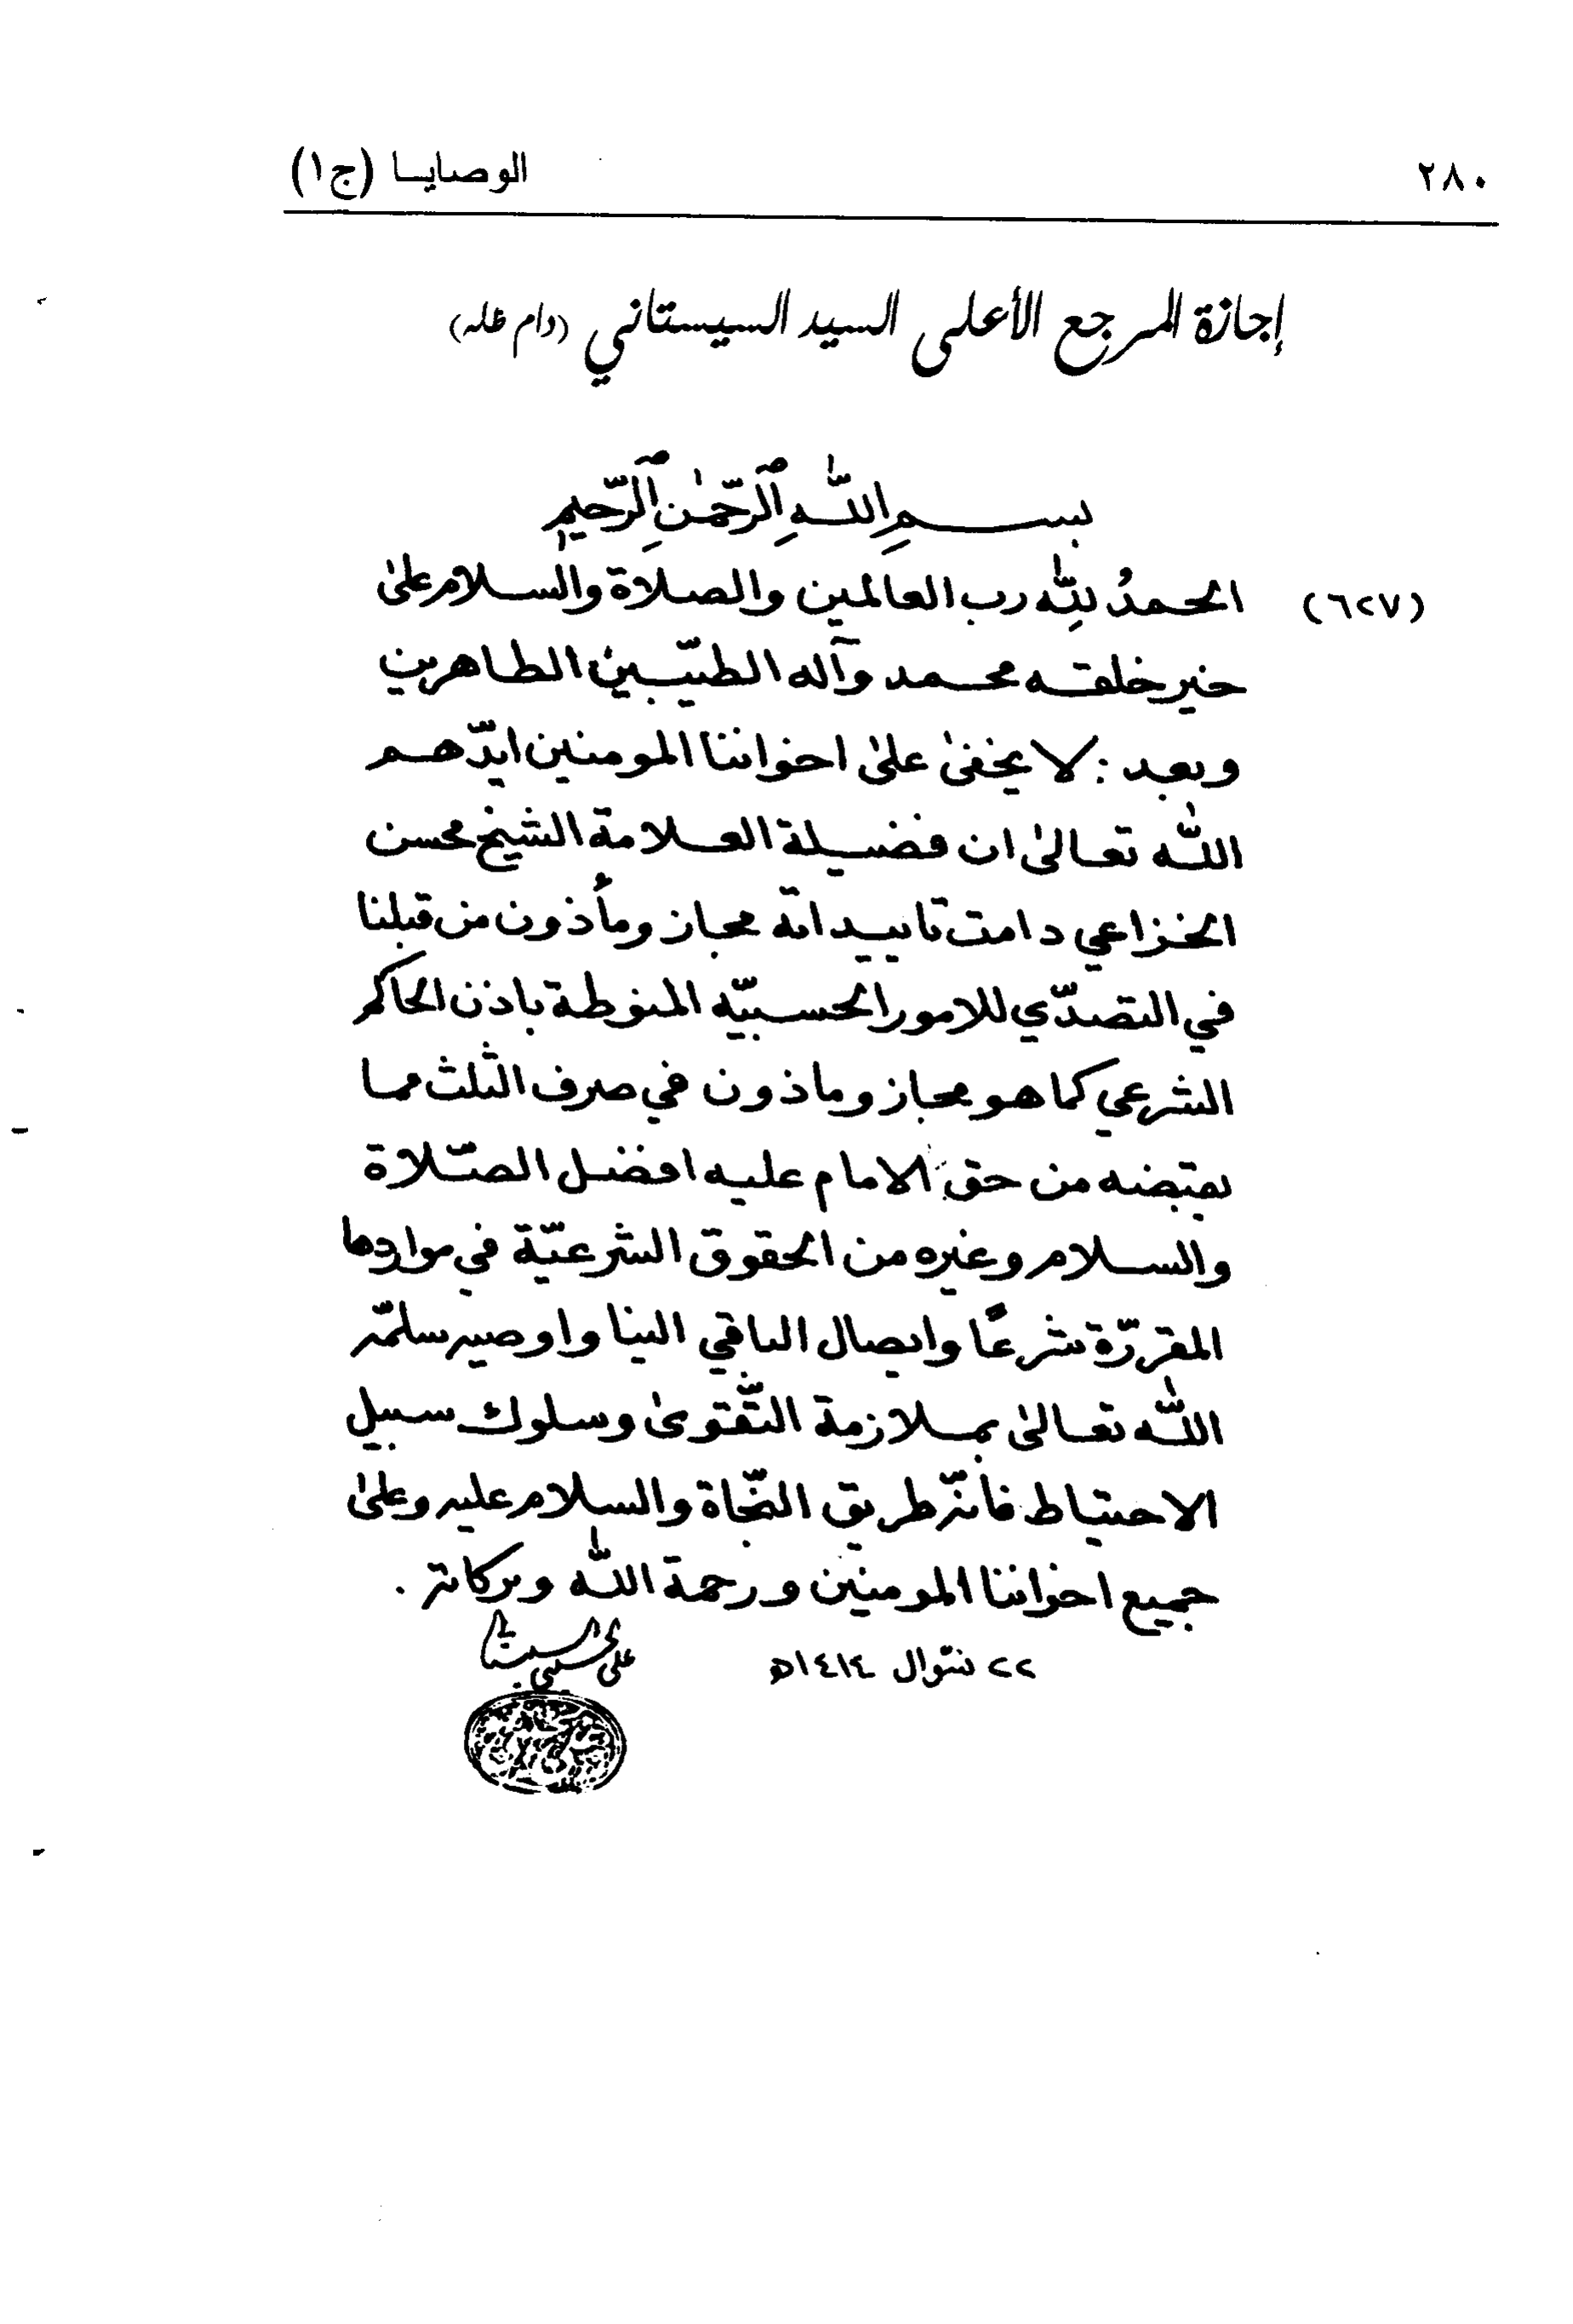 ٢٨٠ الوصايا (ج١)
إجازة المرجع الأعلى السيد السيستاني (دام ظله)
بسم الله الرحمن الرحيم
(٦٢٧) الحمدُ لله رب العالمين والصلاة والسلام على
خير خلقه محمد وآله الطيّبين الطاهرين
وبعد : لا يخفى على اخواننا المومنين ايدّهم
الله تعالى ان فضيلة العلامة الشيخ محسن
الخزاعي دامت تاييداته مجاز ومأذون من قبلنا
في التصدّي للامور الحسبيّه المنوطة باذن الحاكم
الشرعي كما هو مجاز وماذون في صرف الثلث مما
يقبضه من حق الامام عليه افضل الصّلاة
والسلام وغيره من الحقوق الشرعيّة في مواردها
المقررّة شرعًا وايصال الباقي الينا واوصيه سلمّه
الله تعالى بملازمة التّقوى وسلوك سبيل
الاحتياط فانّه طريق النّجاة والسلام عليه وعلى
جميع اخواننا المومنين ورحمة الله وبركاته .
٢٢ شوّال ١٤١٤ه علي الحسيني السيستاني